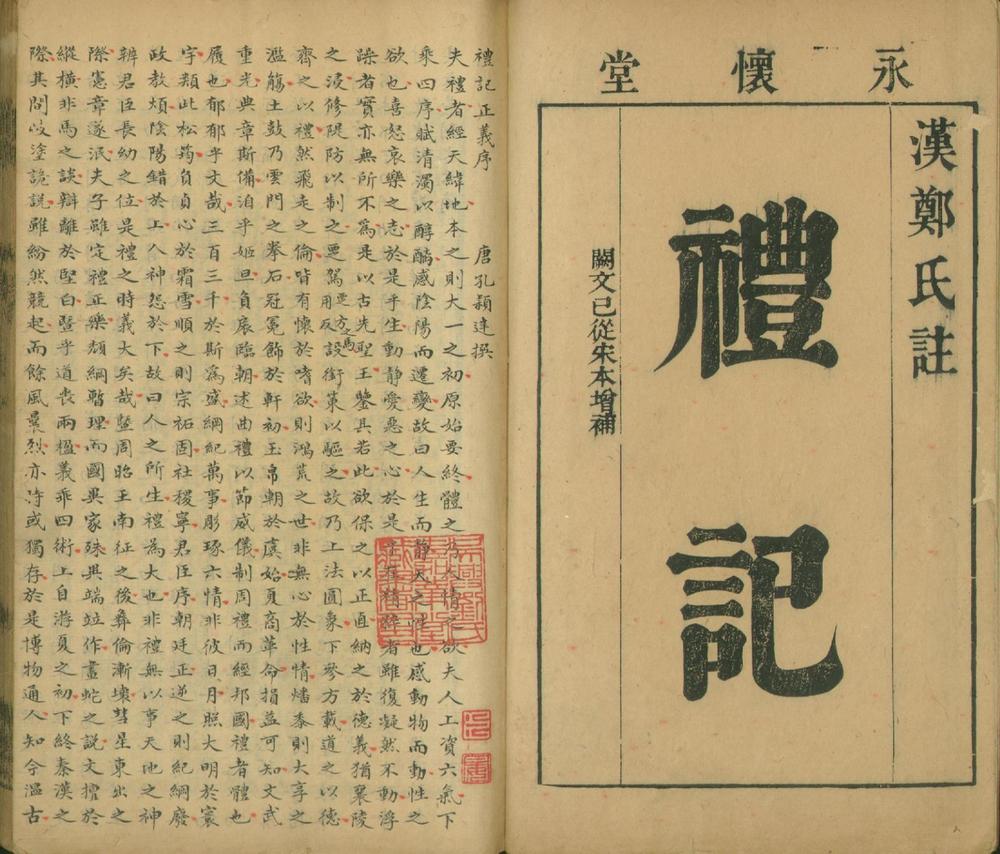 永懷堂
漢鄭氏註
禮記
闕文已從宋本增補
禮記正義序 唐孔穎達撰
夫禮者經天緯地本之則大一之初原始要終體之乃人情之欲夫人工資六氣下
乘四序賦清濁以醇醨感陰陽而遷變故曰人生而靜天之性也感動物而動性之
欲也喜怒哀樂之志於是乎生動靜愛惡之心於是乎在精粹者雖復凝然不動浮
躁者實亦無所不爲是以古先聖王鑒其若此欲保之以正直納之於德義猶襄陵
之浸修隄防以制之覂駕覂方用反馬設銜策以驅之故乃上法圓象下參方載道之以德
齊之以禮然飛走之倫皆有懷於嗜欲則鴻荒之世非無心於性情燔黍則大享之
濫觴土鼓乃雲門之拳石冠冕飾於軒初玉帛朝於虞始夏商革命損益可知文武
重光典章斯備洎乎姬旦負扆臨朝述曲禮以節威儀制周禮而經邦國禮者體也
履也郁郁乎文哉三百三千於斯爲盛綱紀萬事彫琢六情非彼日月照大明於寰
宇類此松筠負貞心於霜雪順之則宗祏固社稷寧君臣序朝廷正逆之則紀綱廢
政教煩陰陽錯於上人神怨於下故曰人之所生禮為大也非禮無以事天地之神
辨君臣長幼之位是禮之時義大矣哉暨周昭王南征之後彝倫漸壞彗星東出之
際憲章遂泯夫子雖定禮正樂頹綱暫理而國異家殊異端竝作畫蛇之說文擅於
縱橫非馬之談辯離於堅白暨乎道喪兩楹義乖四術上自游夏之初下終秦漢之
際其間岐塗詭說雖紛然競起而餘風曩烈亦時或獨存於是博物通人知今溫古